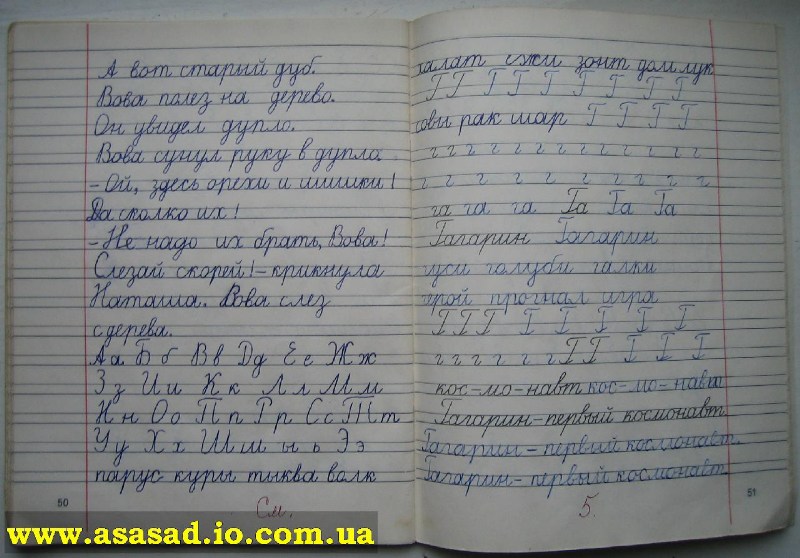 А вот старый дуб.
Вова полез на дерево.
Он увидел дупло.
Вова сунул руку в дупло
– Ой, здесь орехи и шишки!
Да сколко их!
– Не надо их брать, Вова!
Слезай скорей! – крикнула
Наташа. Вова слез
с дерева.
Аа Бб Вв Дд Ее Жж
Зз Ии Кк Лл Мм
Нн Оо Пп Рр Сс Тт
Уу Хх Шш ы ь Ээ
парус куры тыква волк
См.
50
халат ежи зонт дом лук
Г Г Г Г Г Г Г Г Г
совы рак шар Г Г Г Г
г г г г г г г г г г г г
г г г г г г г г г г
га га га Га Га Га
Гагарин Гагарин
гуси голуби галки
герой прогнал игра
Г Г Г Г Г Г Г Г
г г г г г г г Г Г Г Г Г
кос-мо-навт кос-мо-навт
Гагарин – первый космонавт.
Гагарин – первый космонавт.
Гагарин – первый космонавт.
5.
51
www.asasad.io.com.ua